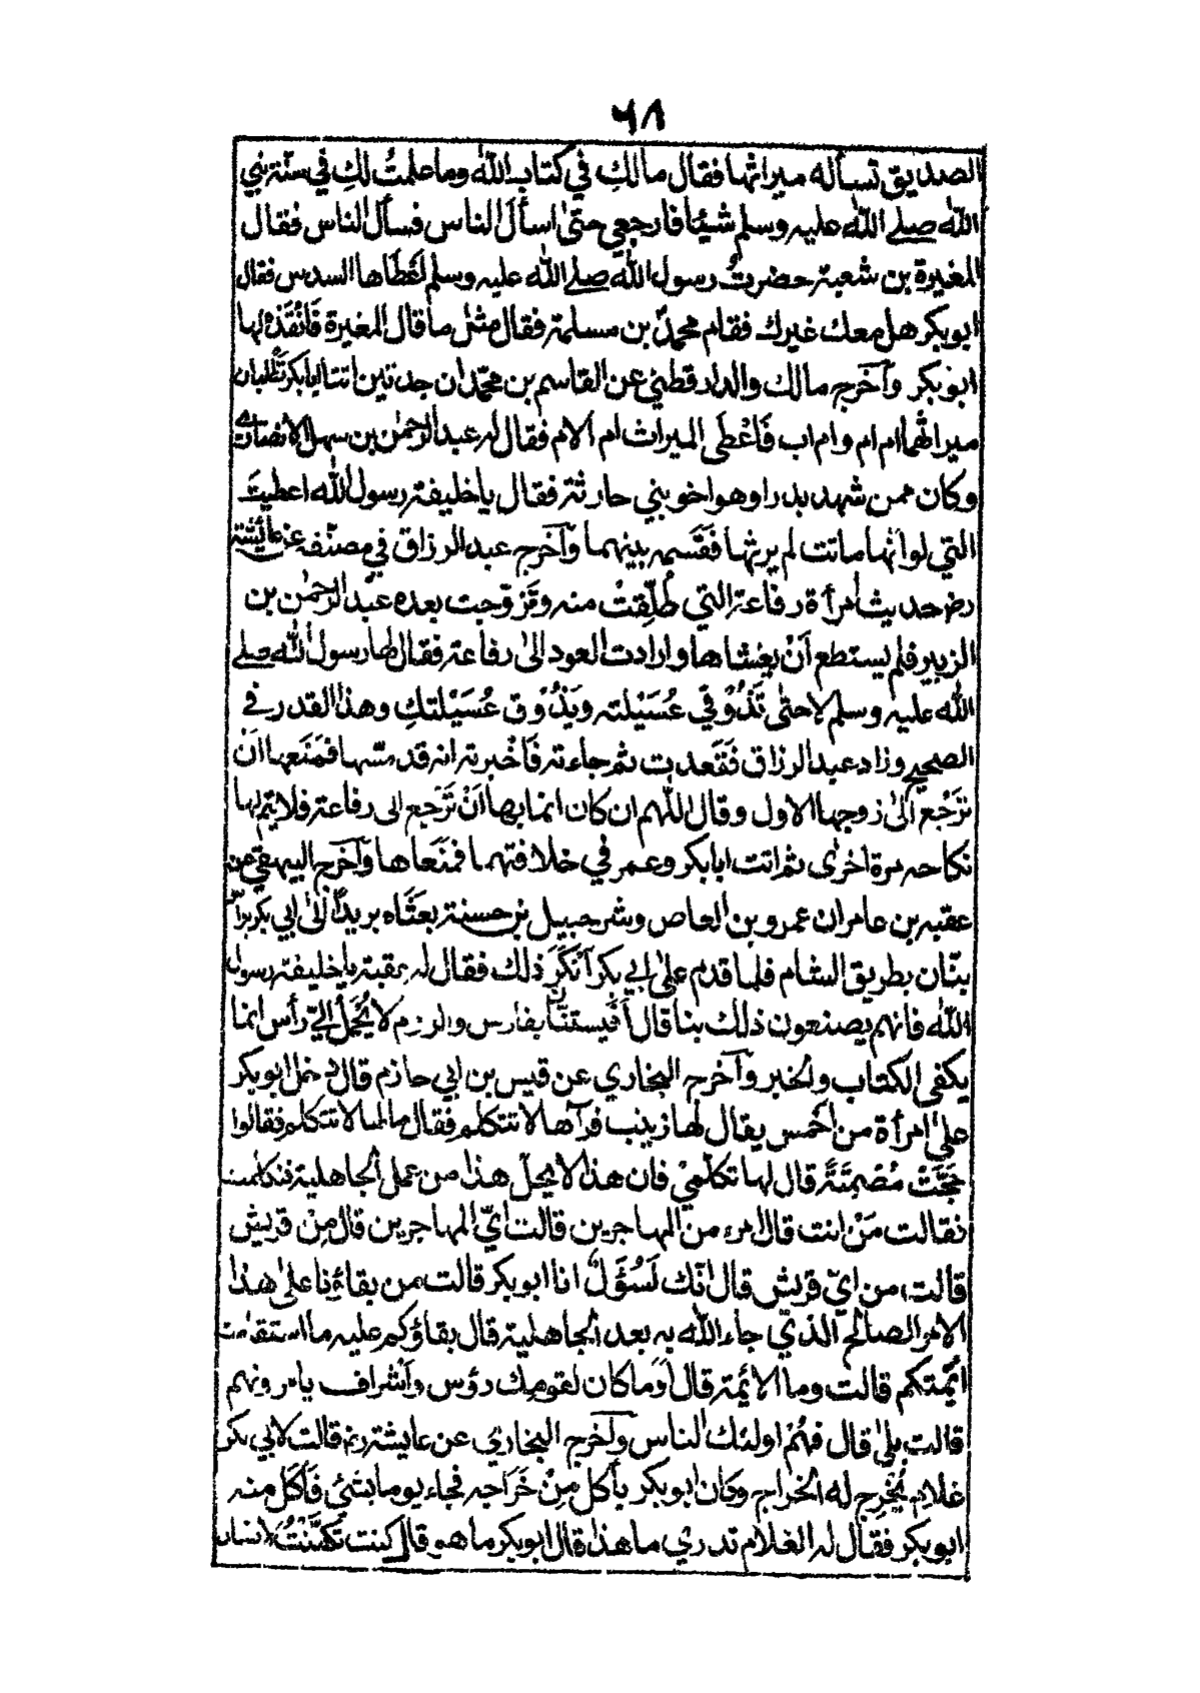 ٦٨
الصديق تسأله ميراثها فقال مالكِ في كتاب الله وما علمتُ لكِ في سنة نبي
الله صلے الله عليه وسلم شيئا فارجعي حتى اسألَ الناس فسأل الناس فقال
المغيرة بن شعبة حضرتُ رسول الله صلے الله عليه وسلم اَعْطَاها السدس فقال
ابوبكر هل معك غيرك فقام محمدٌ بن مسلمة فقال مثل ما قال المغيرة فَاَنْفَذَه لها
ابوبكر وآخرج مالك والدارقطني عن القاسم بن محمد ان جدتين اتتا ابابكر تَطْلُبان
ميراثهما ام ام وام اب فَاَعْطَى الميراث ام الام فقال له عبد الرحمٰن بن سهل الانصاري
وكان ممن شهد بدرا وهو اخو بني حارثة فقال يا خليفة رسول الله اعطيتَ
التي لو انها ماتت لم يرثها فَقَسَمه بينهما وآخرج عبد الرزاق في مصنّفه عن عائشة
رض حديث امرأة رفاعة التي طُلِّقتْ منه وتَزوّجت بعده عبْد الرحمٰن بن
الزبير فلم يستطع اَنْ يغشاها وارادت العود الىٰ رفاعة فقال لها رسول الله صلے
الله عليه وسلم لا حتّٰى تَذُوْقي عُسَيْلته ويَذُوْق عُسَيْلتكِ وهذا القدر في
الصحيح وزاد عبد الرزاق فَقَعدت ثم جاءته فَاَخْبرته انه قد مسّها فمَنَعها اَنْ
تَرْجع الىٰ زوجها الاول وقال اللّٰهم ان كان انما بها اَنْ تَرْجع الى رفاعة فلا يتم لها
نكاحه مرة اخرٰى ثم اتت ابابكر وعمر في خلافتهما فمَنَعاها وآخرج البيهقي عن
عقبه بن عامر ان عمرو بن العاص وشرحبيل بن حسنة بعثاه بريدًا الىٰ ابي بكر برأس
بنّان بطريق الشام فلما قدم علىٰ ابي بكر اَنْكَرَ ذلك فقال له عقبة يا خليفة رسول
الله فانهم يصنعون ذلك بنا قال اَفَيستنّان بفارس والروم لا يُحْمَل اِليّ رأس انما
يكفى الكتاب والخبر وآخرج البخاري عن قيس بن ابي حازم قال دخل ابوبكر
علىٰ امرأة من اَحْمس يقال لها زينب فرآها لا تتكلم فقال مالها لا تتكلم فقالوا
حَجَّتْ مُصْمِتَةً قال لها تكلّميْ فان هذا لا يحلّ هذا من عمل الجاهلية فتكلمت
فقالت مَنْ انت قال امرء من المهاجرين قالت ايّ المهاجرين قال مِنْ قريش
قالت من ايّ قريش قال انّك لَسَؤُلٌ انا ابوبكر قالت من بقاءُنا علىٰ هذا
الامر الصالح الذي جاء الله به بعد الجاهلية قال بقاؤكم عليه ما استقامت
ائمّتكم قالت وما الائمة قال اَوَما كان لقومك رؤس واَشْراف يامرونهم
قالت بلىٰ قال فَهُمْ اولئك الناس وآخرج البخاري عن عايشة رض قالت كان لابي بكر
غلام يُخْرِج له الخراج وكان ابوبكر يأكل مِنْ خَرَاجه فجاء يوما بشئ فَاَكَل منه
ابوبكر فقال له الغلام تدري ما هذا قال ابوبكر ما هو قال كنت تكَهَّنْتُ لانسان